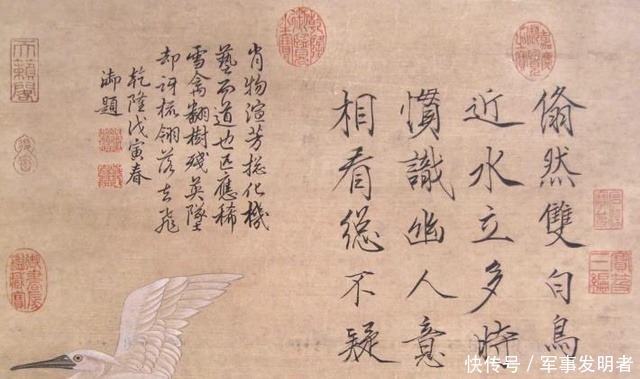 翛然雙白鳥
近水立多時
慣識幽人意
相看緫不疑
肖物渲芳捴化機
藝而道也匹應稀
雪禽翻樹殘英墜
却訝梳翎落去飛
乾隆戊寅春
御題
天籟閣
寶笈三編
快传号 / 军事发明者